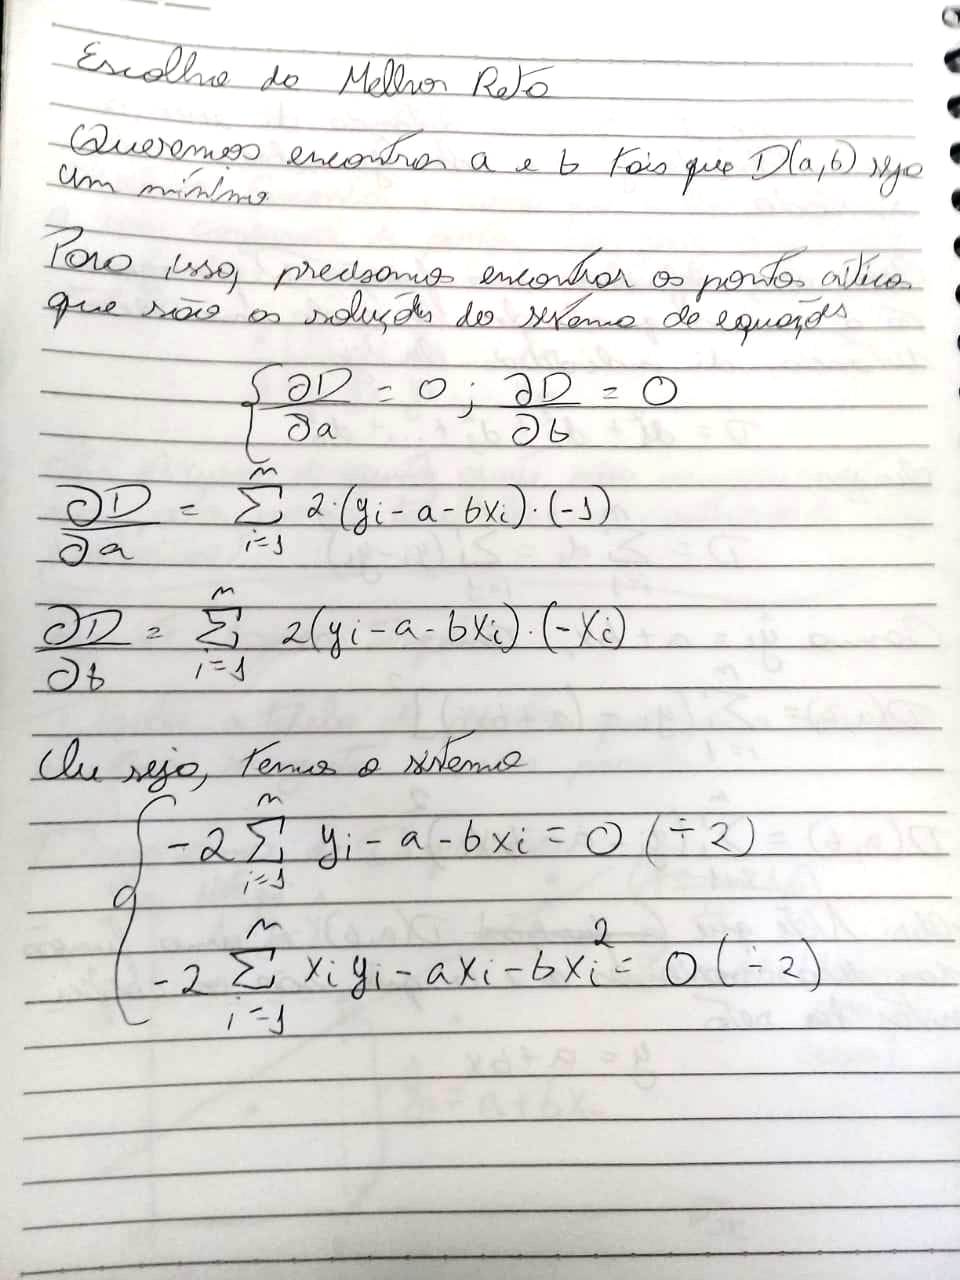 Escolha da Melhor Reta
Queremos encontrar a e b tais que D(a,b) seja
um mínimo.
Para isso, precisamos encontrar os pontos críticos
que são as soluções do sistema de equações
{ ∂D/∂a = 0 ; ∂D/∂b = 0
∂D/∂a = Σ_{i=1}^{n} 2·(yi - a - bxi)·(-1)
∂D/∂b = Σ_{i=1}^{n} 2(yi - a - bxi)·(-xi)
Ou seja, temos o sistema
{ -2 Σ_{i=1}^{n} yi - a - bxi = 0 (÷2)
-2 Σ_{i=1}^{n} xiyi - axi - bxi² = 0 (÷2)